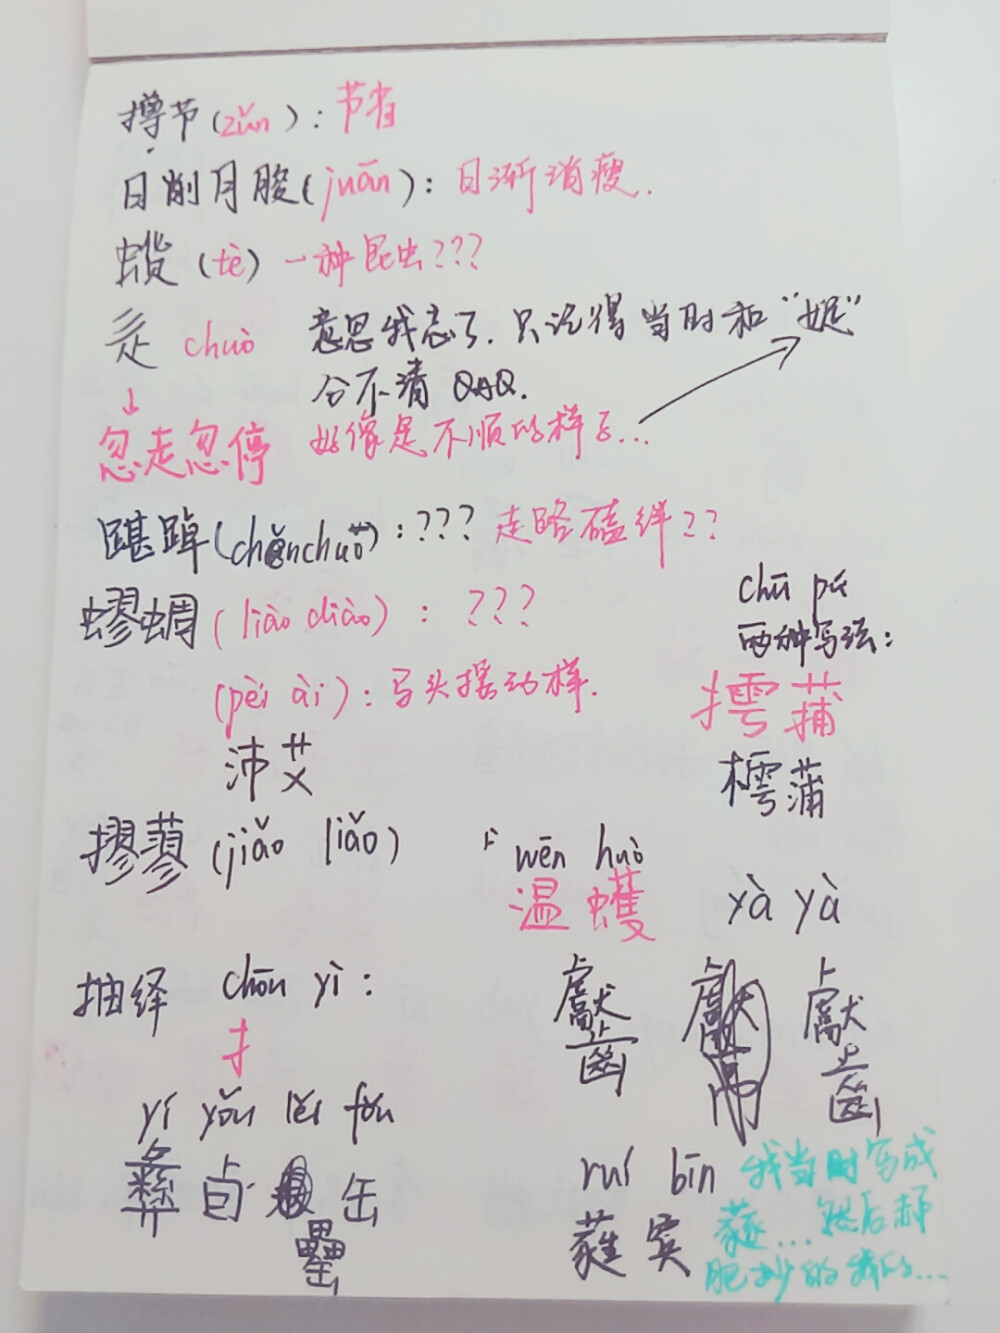 撙节(zǔn):节省
日削月朘(juān):日渐消瘦.
蟘(tè)一种昆虫???
辵 chuò 意思我忘了.只记得当时和"娖"
分不清 QAQ.
↓
忽走忽停 好像是不顺的样子...
踸踔(chěnchuō):???走路磕绊??
蟉蜩(liào diào):???
(pèi ài):马头摇动样.
沛艾
chū pú
两种写法:
摴蒱
樗蒲
摎蓼(jiǎo liǎo)
wēn huò
温蠖
yà yà
抽绎 chōu yì:
扌
yí yǒu léi fǒu
彝卣 缶
罍
ruí bīn
蕤宾
我当时写成
然后
的我的...